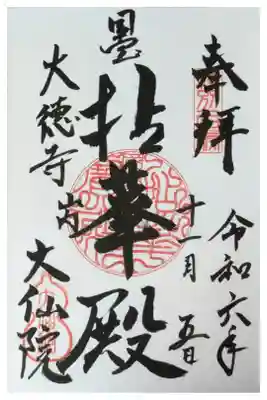 奉拝
令和六年
十一月五日
拈華殿
大徳寺山内
大仙院